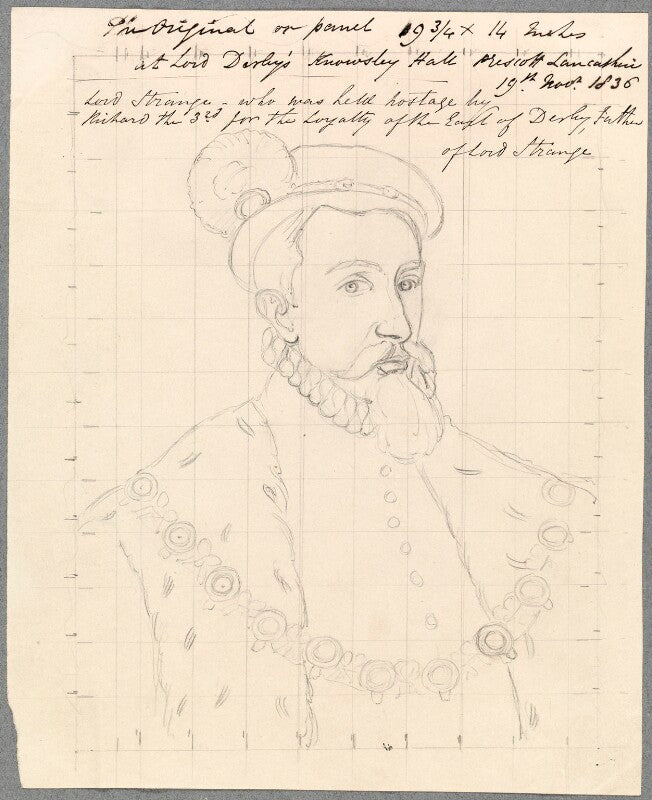 The Original on panel 19 3/4 x 14 Inches
at Lord Derby's Knowsley Hall Prescott Lancashire
19th Novr. 1836
Lord Strange - who was held hostage by
Richard the 3rd for the Loyalty of the Earl of Derby, Father
of Lord Strange